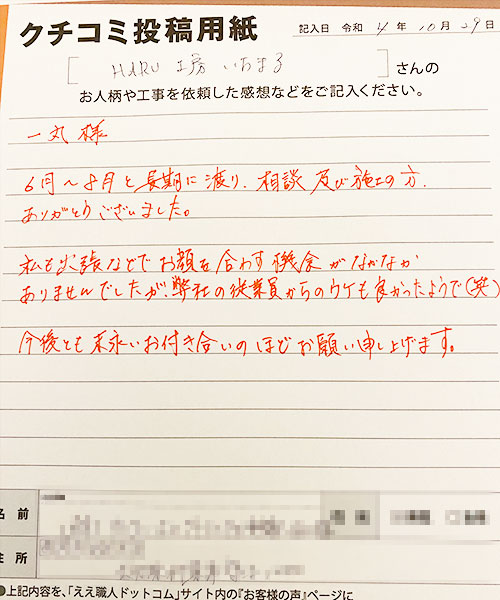 クチコミ投稿用紙
記入日 令和 4 年 10 月 29 日
[ HARU工房 いちまる ] さんの
お人柄や工事を依頼した感想などをご記入ください。
一丸 様
6月〜8月と長期に渡り、相談及び施工の方、
ありがとうございました。
私も出張などでお顔を合わす機会がなかなか
ありませんでしたが、弊社の従業員からのウケも良かったようで(笑)
今後とも末永いお付き合いのほどお願い申し上げます。
名 前
住 所
●上記内容を、「ええ職人ドットコム」サイト内の『お客様の声』ページに